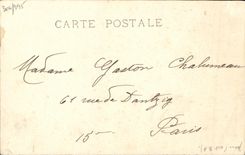 CARTE POSTALE
Madame Gaston Chalumeau
61 rue de Dantzig
15ème
Paris